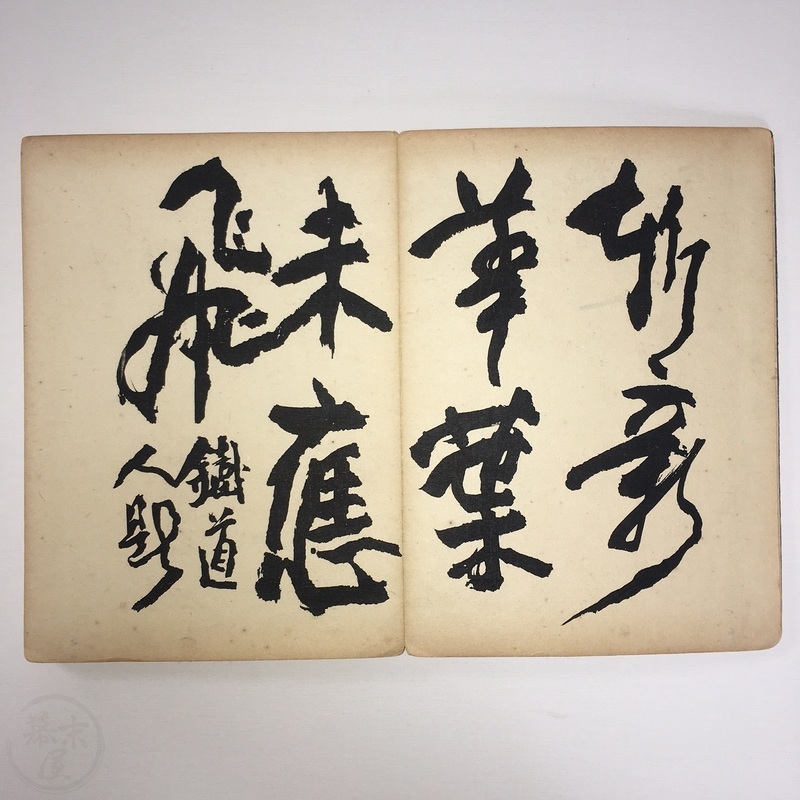 斬新
華葉
未應
飛
鐵道
人題
幕末
屋